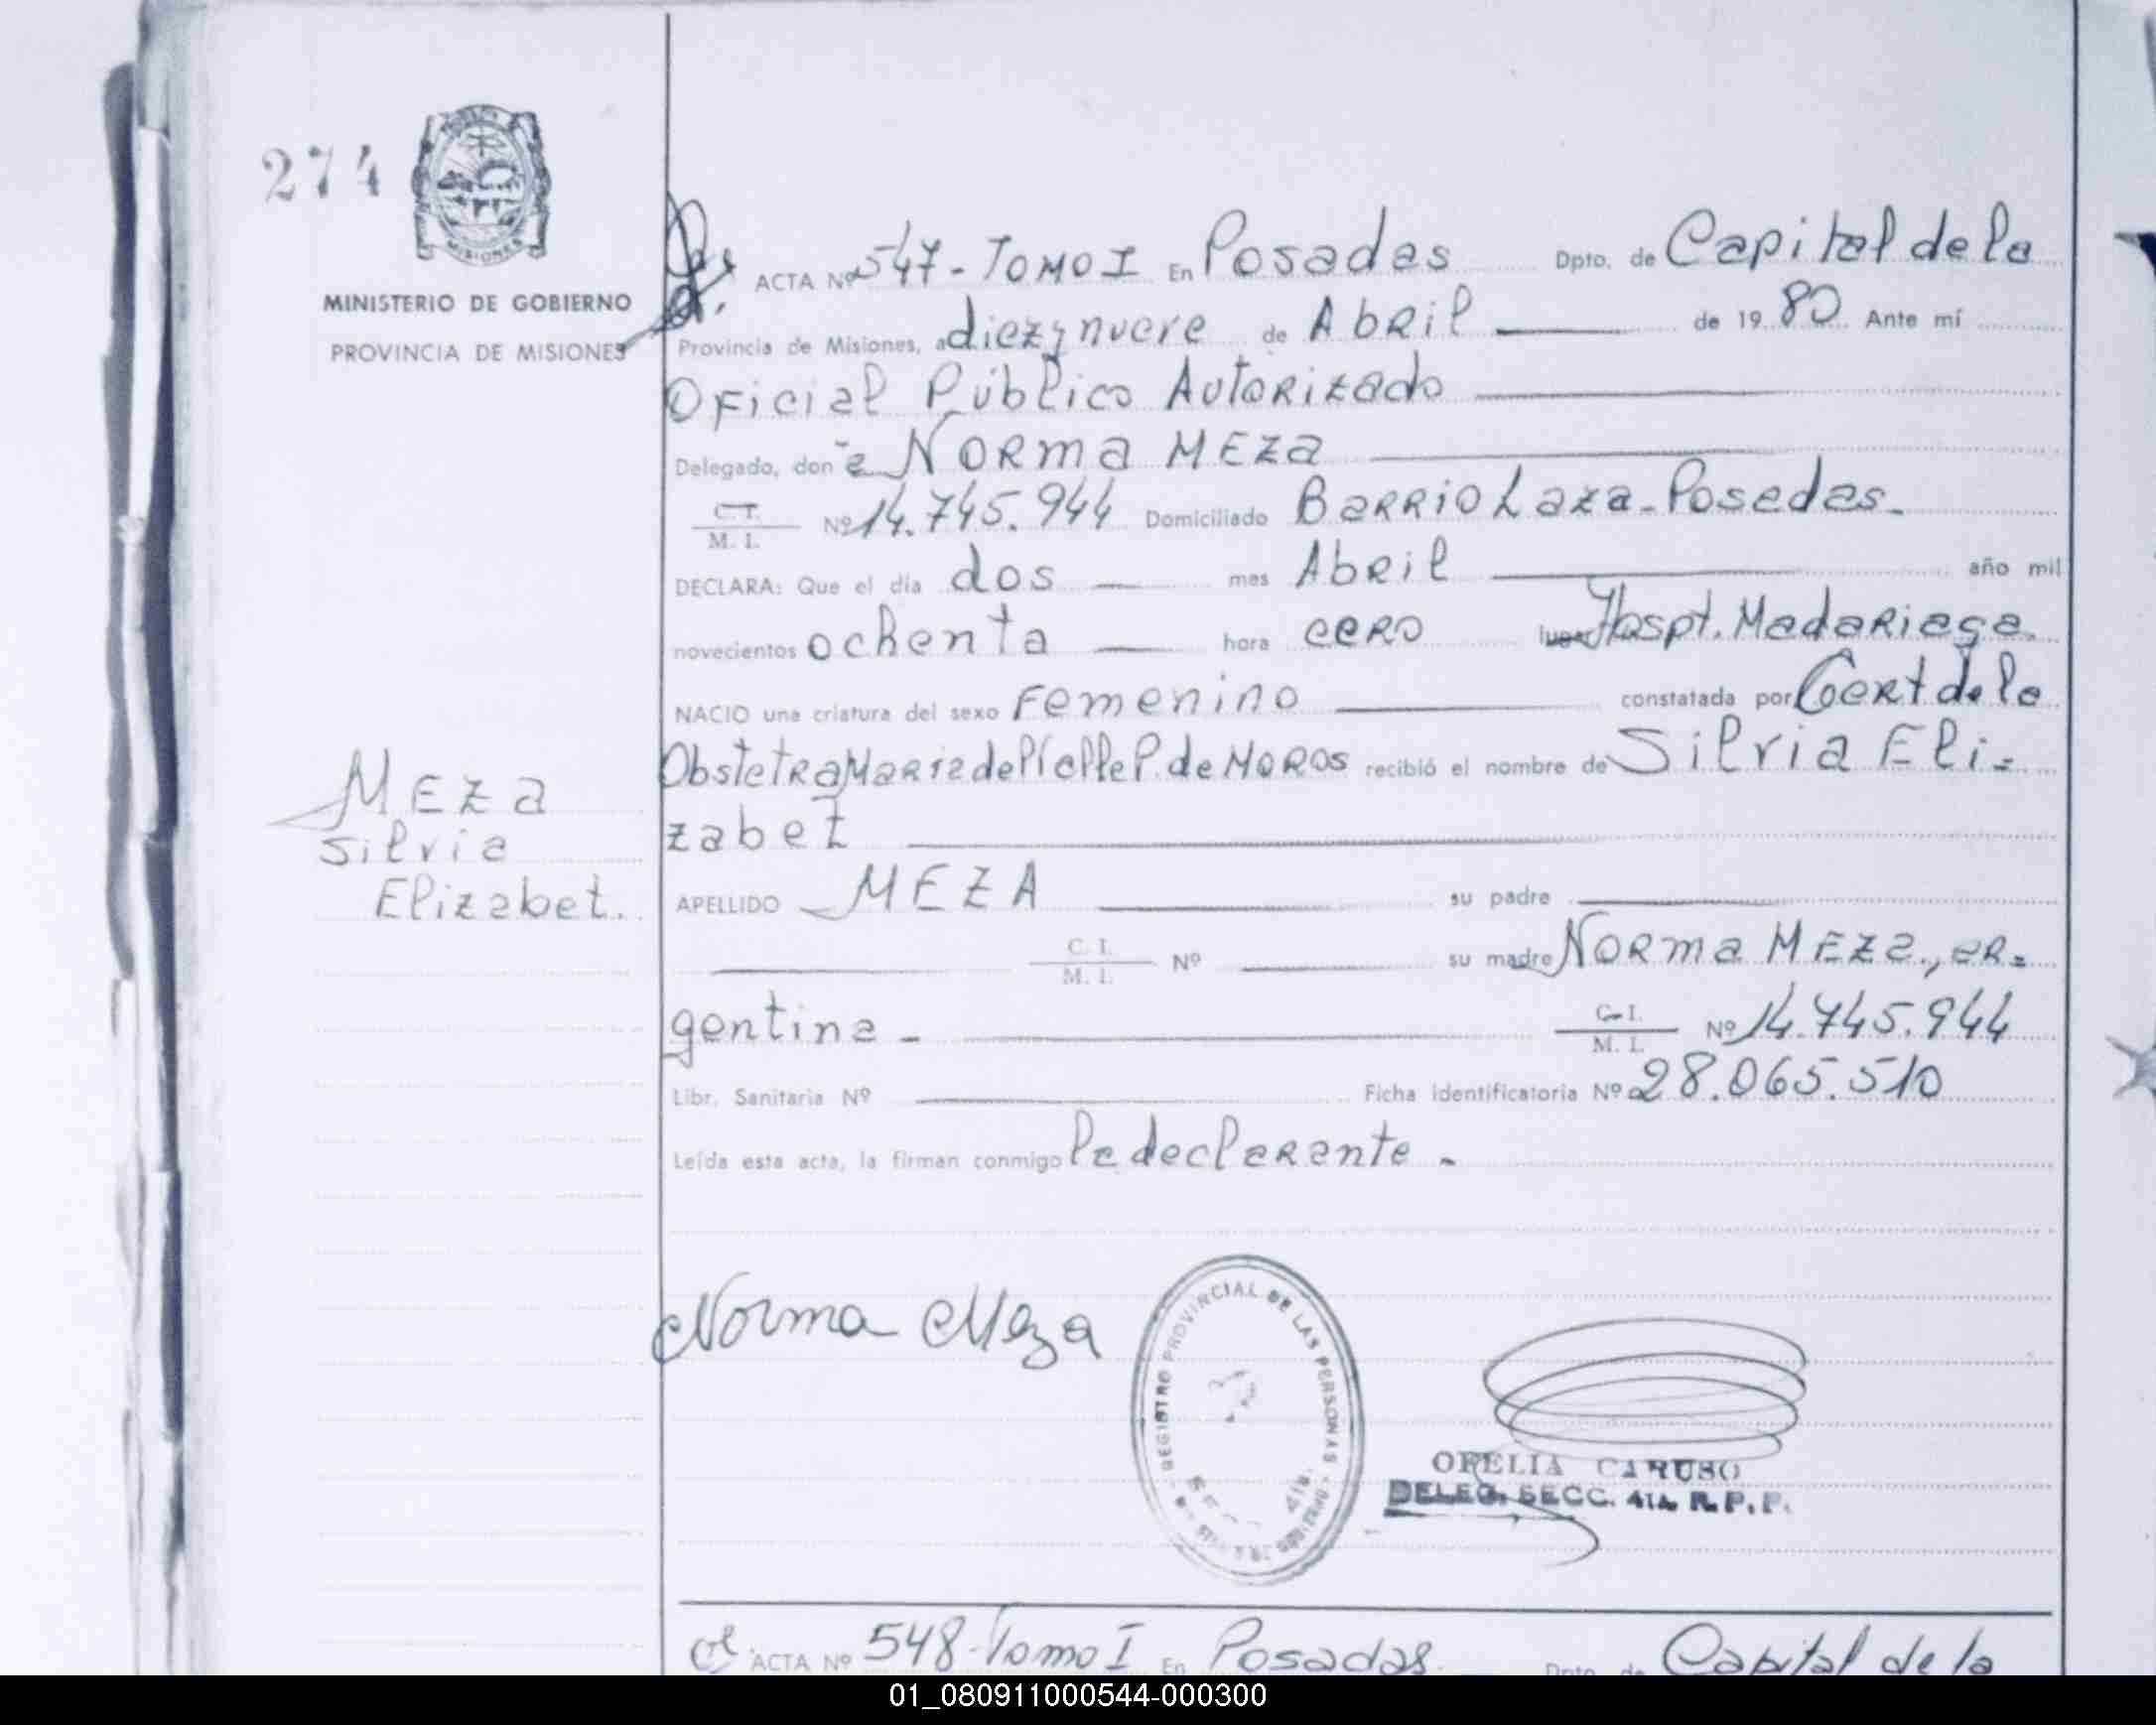 274
MISIONES
MINISTERIO DE GOBIERNO
PROVINCIA DE MISIONES
ACTA Nº 547 - TOMO I En Posadas Dpto. de Capital de la
Provincia de Misiones, a diez y nueve de Abril de 1980 Ante mí
Oficial Público Autorizado
Delegado, don a Norma MEza
C. I. / M. I. Nº 14.745.944 Domiciliado Barrio Laza - Posadas.
DECLARA: Que el día dos mes Abril año mil
novecientos ochenta hora cero lugar Hospt. Madariaga
NACIO una criatura del sexo Femenino constatada por Cert de la
Obstetra Maria del P. de Moros recibió el nombre de Silvia Eli=
zabet
MEza
Silvia
Elizabet.
APELLIDO MEZA su padre
C. I. / M. I. Nº su madre Norma MEza, ar=
gentina - C. I. / M. I. Nº 14.745.944
Libr. Sanitaria Nº Ficha identificatoria Nº 28.065.510
Leída esta acta, la firman conmigo la declarante -
Norma Meza
REGISTRO PROVINCIAL DE LAS PERSONAS
OFELIA CARUSO
DELEG. SECC. 4ta. R. P. P.
ACTA Nº 548 - Tomo I En Posadas Dpto. de Capital de la
01_080911000544-000300